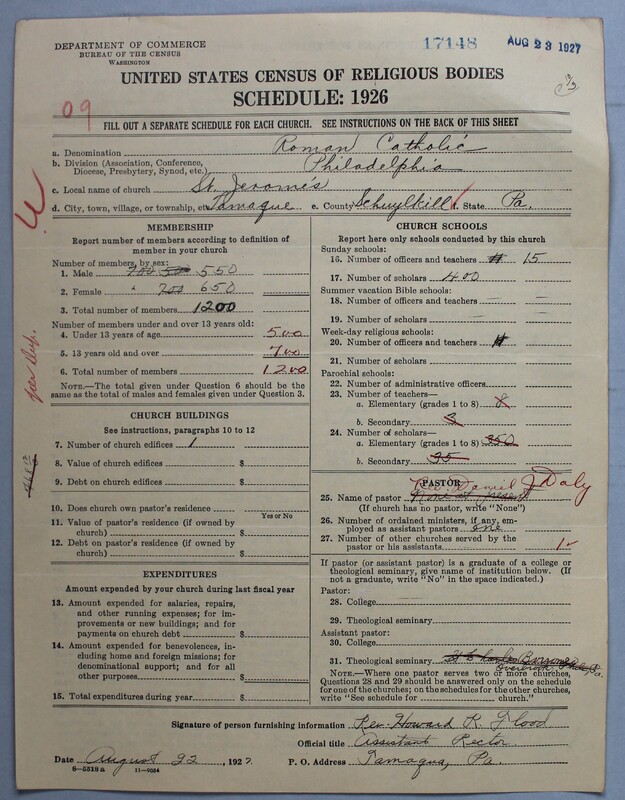 DEPARTMENT OF COMMERCE
BUREAU OF THE CENSUS
WASHINGTON
17148
AUG 23 1927
UNITED STATES CENSUS OF RELIGIOUS BODIES
SCHEDULE: 1926
09
FILL OUT A SEPARATE SCHEDULE FOR EACH CHURCH. SEE INSTRUCTIONS ON THE BACK OF THIS SHEET
a. Denomination Roman Catholic
b. Division (Association, Conference, Diocese, Presbytery, Synod, etc.) Philadelphia
c. Local name of church St. Jerome's
d. City, town, village, or township, etc. Tamaque e. County Schuylkill f. State Pa.
MEMBERSHIP
Report number of members according to definition of
member in your church
Number of members, by sex:
1. Male 700 50 550
2. Female " 700 650
3. Total number of members 1200
Number of members under and over 13 years old:
4. Under 13 years of age 500
5. 13 years old and over 700
6. Total number of members 1200
NOTE.—The total given under Question 6 should be
same as the total of males and females given under Question 3.
CHURCH BUILDINGS
See instructions, paragraphs 10 to 12
7. Number of church edifices 1
8. Value of church edifices $
9. Debt on church edifices $
10. Does church own pastor's residence
Yes or No
11. Value of pastor's residence (if owned by
church) $
12. Debt on pastor's residence (if owned by
church) $
EXPENDITURES
Amount expended by your church during last fiscal year
13. Amount expended for salaries, repairs,
and other running expenses; for im-
provements or new buildings; and for
payments on church debt $
14. Amount expended for benevolences, in-
cluding home and foreign missions; for
denominational support; and for all
other purposes $
15. Total expenditures during year $
CHURCH SCHOOLS
Report here only schools conducted by this church
Sunday schools:
16. Number of officers and teachers 15
17. Number of scholars 400
Summer vacation Bible schools:
18. Number of officers and teachers
19. Number of scholars
Week-day religious schools:
20. Number of officers and teachers
21. Number of scholars
Parochial schools:
22. Number of administrative officers
23. Number of teachers—
a. Elementary (grades 1 to 8) 8
b. Secondary 3
24. Number of scholars—
a. Elementary (grades 1 to 8) 350
b. Secondary 35
PASTOR
Rev. Daniel J. Daly
25. Name of pastor None at present
(If church has no pastor, write "None")
26. Number of ordained ministers, if any, em-
ployed as assistant pastors one
27. Number of other churches served by the
pastor or his assistants 1
If pastor (or assistant pastor) is a graduate of a college or
theological seminary, give name of institution below. (If
not a graduate, write "No" in the space indicated.)
Pastor:
28. College
29. Theological seminary
Assistant pastor:
30. College
31. Theological seminary St Charles Borromeo
Overbrook Phila, Pa.
NOTE.—Where one pastor serves two or more churches,
Questions 28 and 29 should be answered only on the schedule
for one of the churches; on the schedules for the other churches,
write "See schedule for church."
Signature of person furnishing information Rev. Howard R. Flood
Official title Assistant Rector
Date August 22, 1927. P. O. Address Tamaqua, Pa.
8—5518 a 11—9034